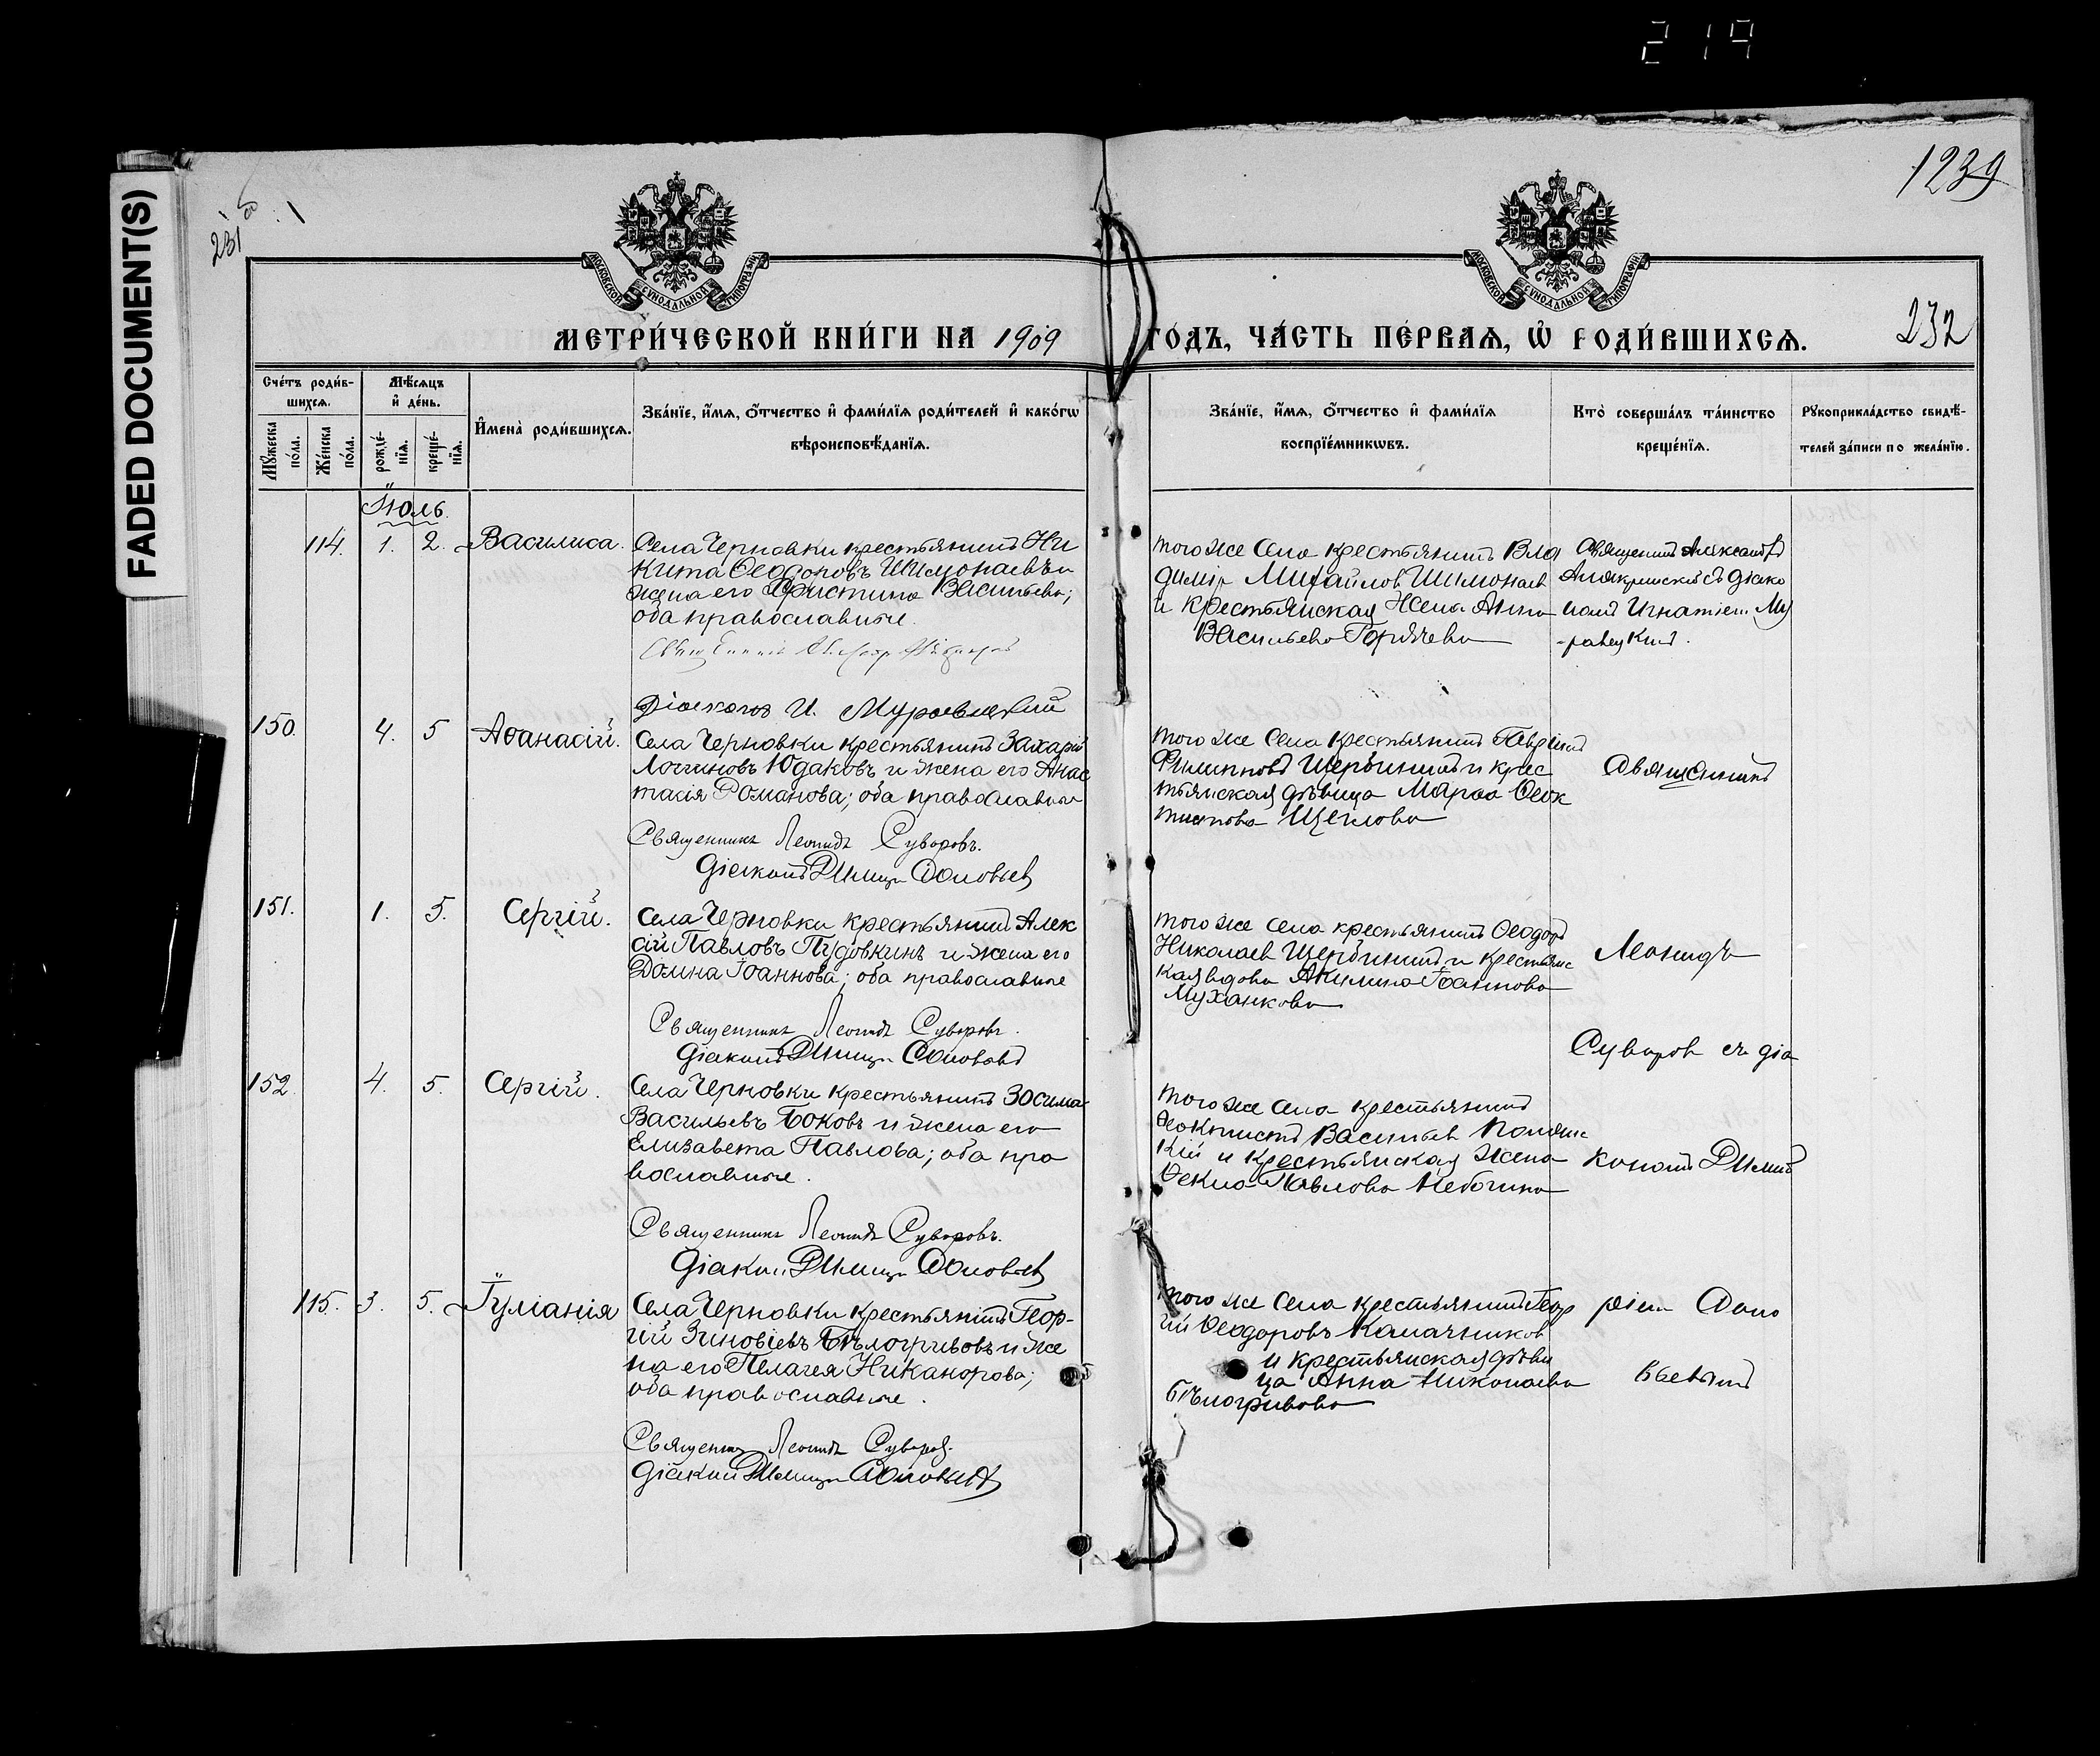 219
FADED DOCUMENT(S)
1239
231
МОСКОВСКОЙ СѴНОДАЛЬНОЙ ТИПОГРАФІИ
МОСКОВСКОЙ СѴНОДАЛЬНОЙ ТИПОГРАФІИ
МЕТРИ́ЧЕСКОЙ КНИ́ГИ НА 1909 ГО́ДЪ, ЧА́СТЬ ПЕ́РВАѦ, Ѡ҆ РОДИ́ВШИХСѦ.
232
Сче́тъ роди́в-
шихсѧ.
Мꙋ́жеска по́ла.
Же́нска по́ла.
Мѣ́сѧцъ
и҆ де́нь.
рожде́-
нїѧ.
креще́-
нїѧ.
И҆мена̀ роди́вшихсѧ.
Зва́нїе, и҆́мѧ, ѻ҆́тчество и҆ фами́лїѧ роди́телей и҆ како́гѡ
вѣроисповѣ́данїѧ.
Зва́нїе, и҆́мѧ, ѻ҆́тчество и҆ фами́лїѧ
воспрїе́мникѡвъ.
Кто̀ соверша́лъ та́инство
креще́нїѧ.
Рꙋкоприкла́дство свидѣ́-
телей за́писи по жела́нїю.
Іюль.
114. 1. 2. Василиса.
Села Черновки крестьянинъ Ни
кита Ѳеодоровъ Шимонаевъ и
жена его Христина Васильева;
оба православные.
Діаконъ И. Муравецкій
того же села крестьянинъ Вла
димір Михайлов Шимонаев
и крестьянская жена Анна
Васильева Горячева
Священникъ Александръ
съ діако
номъ Игнатіем Му
-равецким.
150. 4. 5 Аѳанасій.
Села Черновки крестьянинъ Захарій
Логгиновъ Юдаковъ и жена его Анас
тасія Романова; оба православные
Священникъ Леонидъ Суворовъ.
діаконъ Димитр Соловьев
того же села крестьянинъ Гавріилъ
Филипповъ Щербининъ и крес
тьянская дѣвица Марѳа Ѳеок
тистова Щеглова
Священникъ
151. 1. 5. Сергій.
Села Черновки крестьянинъ Алек
сій Павловъ Пудовкинъ и жена его
Домна Іоаннова; оба православные
Священникъ Леонидъ Суворовъ.
діаконъ Димитр Соловьев
того же села крестьянинъ Ѳеодоръ
Николаев Щербининъ и крестьянс
кая вдова Акилина Іоаннова
Муханкова
Леонидъ
Суворов съ діа
152. 4. 5. Сергій.
Села Черновки крестьянинъ Зосима
Васильевъ Боковъ и жена его
Елизавета Павлова; оба пра
вославные.
Священникъ Леонидъ Суворовъ.
діакон Димитр Соловьев
того же села крестьянинъ
Ѳеоктистъ Васильев Полянс
кій и крестьянская жена
Ѳекла Павлова
кономъ Димит
115. 3. 5. Іуліанія
Села Черновки крестьянинъ Геор-
гій Зиновіевъ Бѣлогривовъ и же
на его Пелагея Никанорова;
оба православные.
Священник Леонидъ Суворов.
діакон Димитр Соловьев
того же села крестьянинъ Геор
гій Ѳеодоровъ Калачников
и крестьянская дѣви
ца Анна Николаева
Бѣлогривова
ріем Соло
вьевымъ